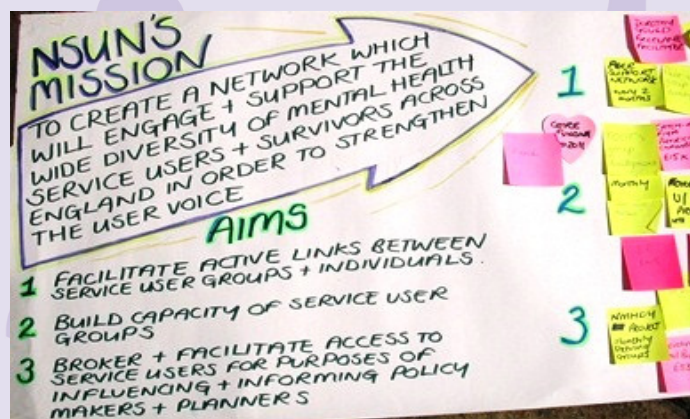 NSUN'S
MISSION
TO CREATE A NETWORK WHICH
WILL ENGAGE + SUPPORT THE
WIDE DIVERSITY OF MENTAL HEALTH
SERVICE USERS + SURVIVORS ACROSS
ENGLAND IN ORDER TO STRENGTHEN
THE USER VOICE
AIMS
1 FACILITATE ACTIVE LINKS BETWEEN
SERVICE USER GROUPS + INDIVIDUALS.
2 BUILD CAPACITY OF SERVICE USER
GROUPS
3 BROKER + FACILITATE ACCESS TO
SERVICE USERS FOR PURPOSES OF
INFLUENCING + INFORMING POLICY
MAKERS + PLANNERS
1
PEER
SUPPORT
NETWORK
2
monthly
3
PROJECT
GROUPS